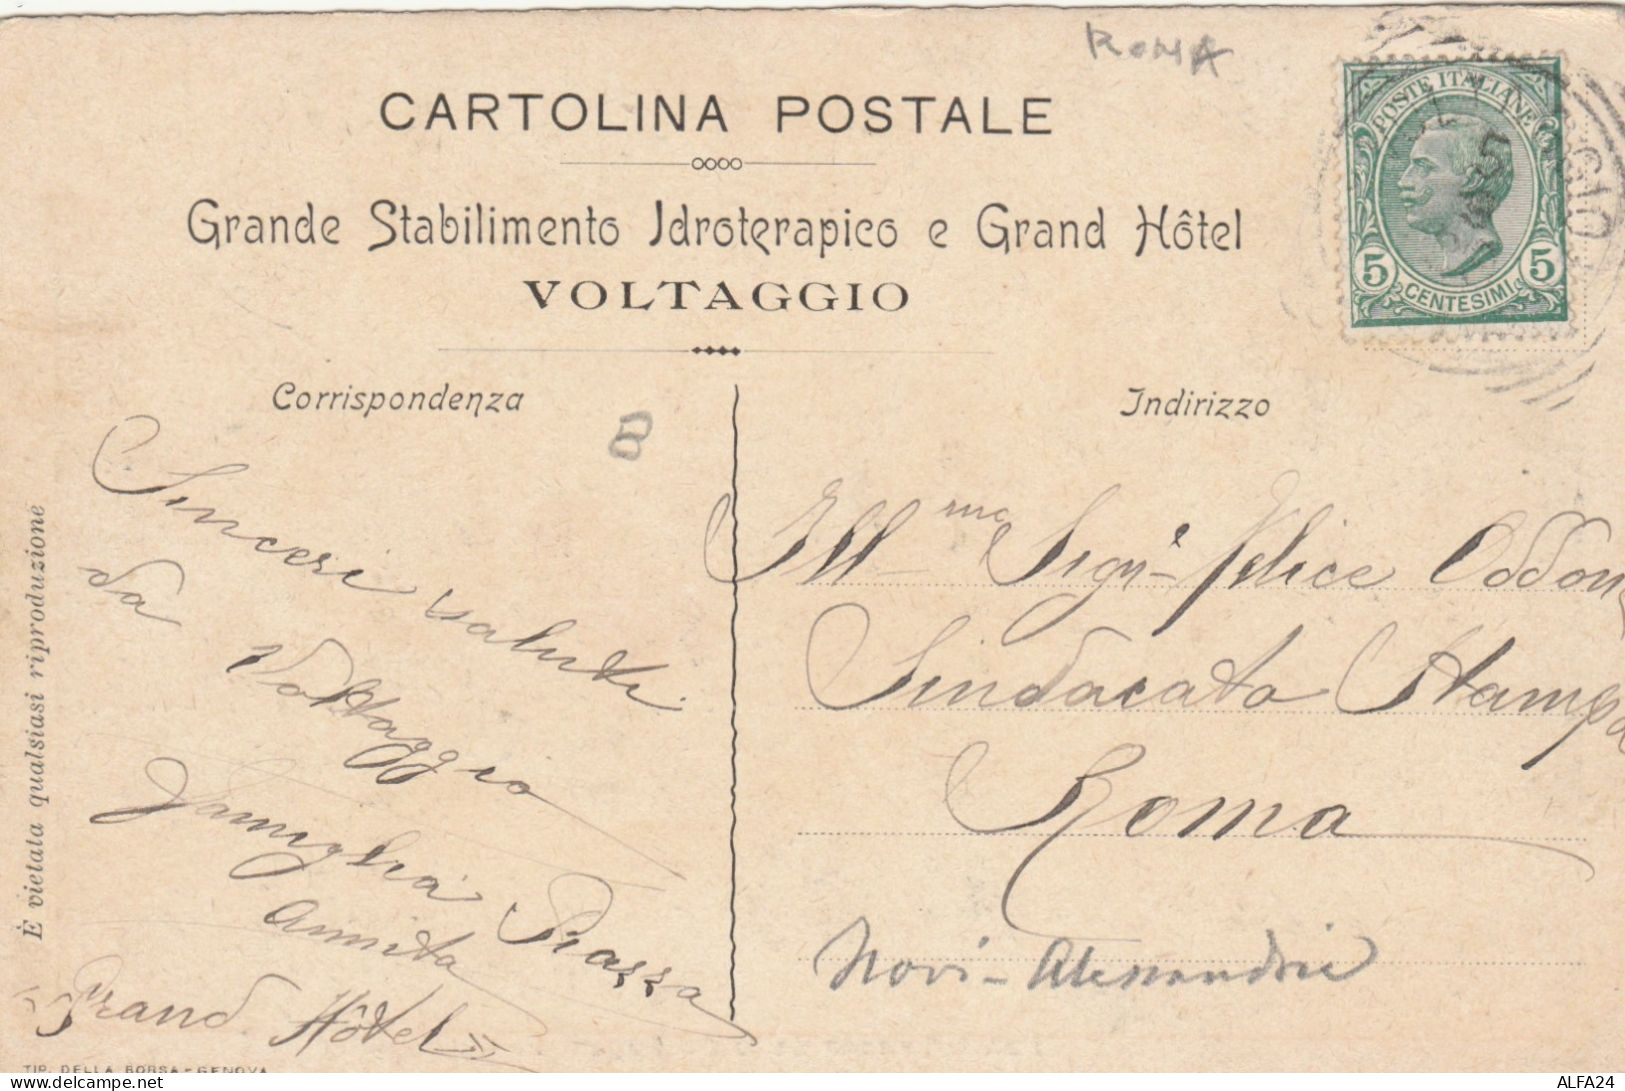 ROMA
CARTOLINA POSTALE
Grande Stabilimento Idroterapico e Grand Hôtel
VOLTAGGIO
POSTE ITALIANE
5 5
CENTESIMI
Corrispondenza
8
Sinceri saluti
da Voltaggio
Famiglia Piazza
Annita
Grand Hôtel
Indirizzo
Ill-mo Sigr- Felice Oddon
Sindacato Stampa
Roma
Novi-Alessandria
È vietata qualsiasi riproduzione
TIP. DELLA BORSA-GENOVA
delcampe.net
ALFA24